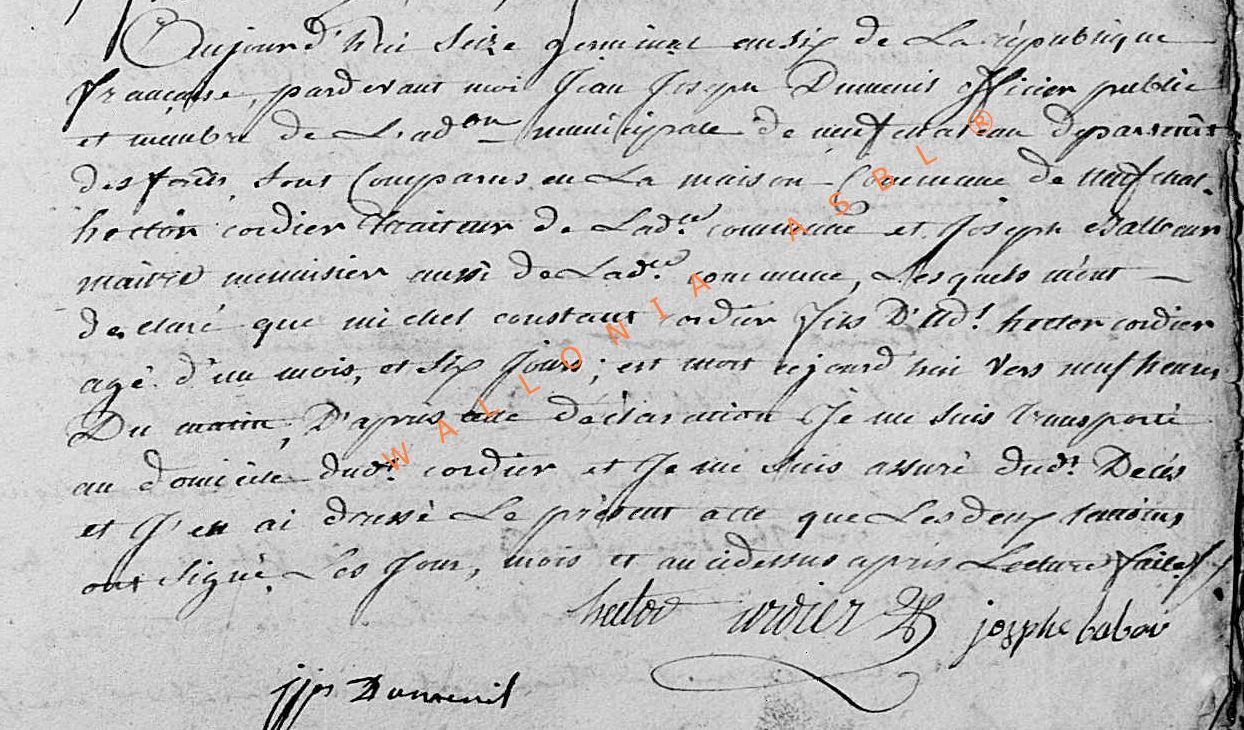 Aujourd'hui seize germinal an six de La république
française, pardevant moi Jean Joseph Dumenil officier public
et membre de L'adon municipale de neufchateau departemt
des forêts, sont Comparus en La maison Commune de neufchat.
hector cordier traiteur de Lad.te commune et Joseph
maitre menuisier aussi de Lad.te commune, Lesquels m'ont
declaré que michel constant cordier fils D'ud.t hector cordier
agé d'un mois, et six Jours; est mort cejourd'hui vers neuf heures
Du matin, D'après cette déclaration Je me suis transporté
au domicile dud.t cordier et Je me suis assuré dud.t Decès
et J'en ai dressé Le présent acte que Les deux temoins
ont signé, Les Jour, mois et an cidessus après Lecture faite./.
hector cordier josephe babou
jjph Dumenil
WALLONIA ASBL ®